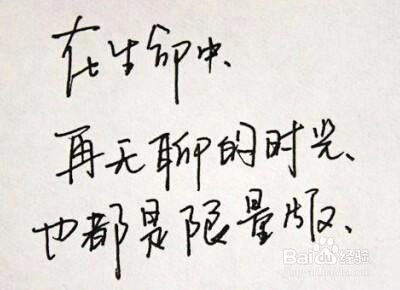 在生命中、
再无聊的时光、
也都是限量版、
Baidu经验